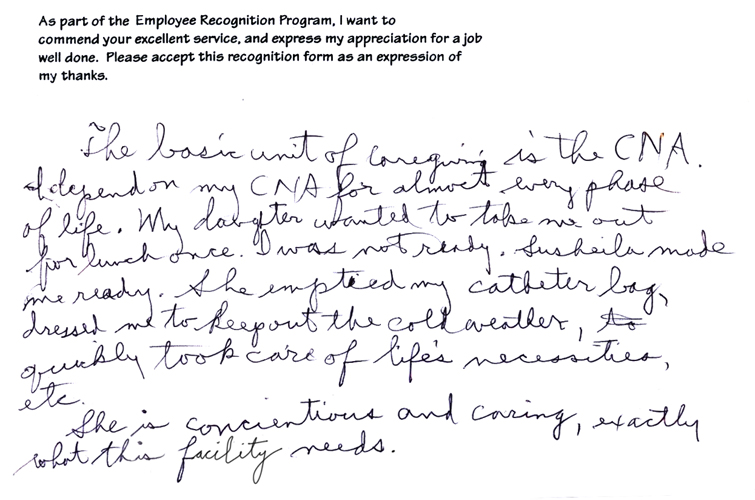 As part of the Employee Recognition Program, I want to
commend your excellent service, and express my appreciation for a job
well done. Please accept this recognition form as an expression of
my thanks.
The basic unit of caregiving is the CNA.
I depend on my CNA for almost every phase
of life. My daugter wanted to take me out
for lunch once. I was not ready. Susheila made
me ready. She emptied my catheter bag,
dressed me to keep out the cold weather, to
quickly took care of life's necessities,
etc.
She is concientious and caring, exactly
what this facility needs.